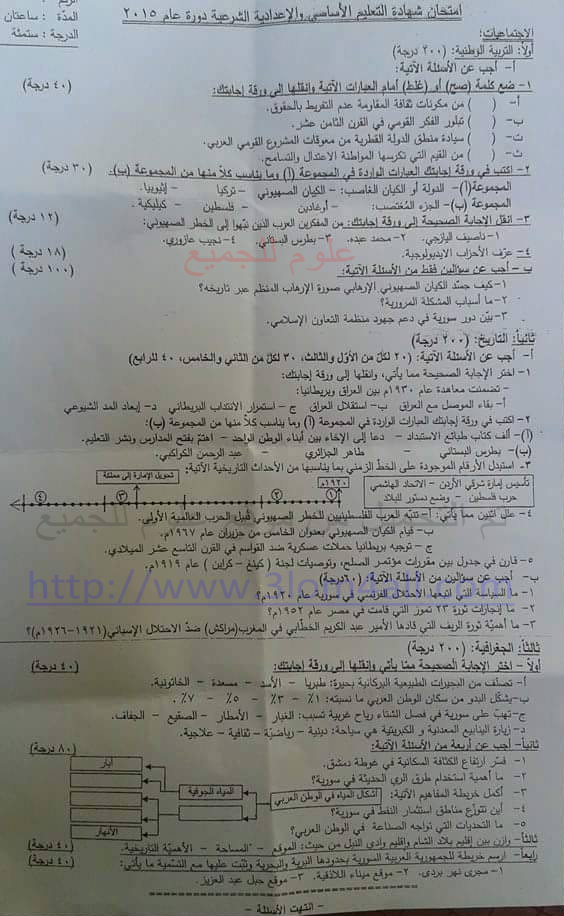 الرقم :
المدّة : ساعتان
الدرجة : ستمئة
امتحان شهادة التعليم الأساسي والإعدادية الشرعية دورة عام ٢٠١٥
الاجتماعيات:
أولاً: التربية الوطنية: (٢٠٠ درجة)
أ- أجب عن الأسئلة الآتية:
١- ضع كلمة (صح) أو (غلط) أمام العبارات الآتية وانقلها إلى ورقة إجابتك: (٤٠ درجة)
أ- ( ) من مكونات ثقافة المقاومة عدم التفريط بالحقوق.
ب- ( ) تبلور الفكر القومي في القرن الثامن عشر.
ت- ( ) سيادة منطق الدولة القطرية من معوقات المشروع القومي العربي.
ث- ( ) من القيم التي تكرسها المواطنة الاعتدال والتسامح.
٢- اكتب في ورقة إجابتك العبارات الواردة في المجموعة (أ) وما يناسب كلاً منها من المجموعة (ب). (٣٠ درجة)
المجموعة (أ)- الدولة أو الكيان الغاصب: - الكيان الصهيوني - تركيا - إثيوبيا.
المجموعة (ب)- الجزء المُغتصب: - أوغادين - فلسطين - كيليكية.
٣- انقل الإجابة الصحيحة إلى ورقة إجابتك: من المفكرين العرب الذين نبّهوا إلى الخطر الصهيوني: (١٢ درجة)
١- ناصيف اليازجي. ٢- محمد عبده. ٣- بطرس البستاني. ٤- نجيب عازوري.
٤- عرّف الأحزاب الايديولوجية. (١٨ درجة)
علوم للجميع
ب - أجب عن سؤالين فقط من الأسئلة الآتية: (١٠٠ درجة)
١-كيف جسّد الكيان الصهيوني الإرهابي صورة الإرهاب المنظم عبر تاريخه؟
٢- ما أسباب المشكلة المرورية؟
٣- بيّن دور سورية في دعم جهود منظمة التعاون الإسلامي.
ثانياً: التاريخ: (٢٠٠ درجة)
أ- أجب عن الأسئلة الآتية: (٢٠ لكل من الأول والثالث، ٣٠ لكل من الثاني والخامس، ٤٠ للرابع)
١- اختر الإجابة الصحيحة مما يأتي، وانقلها إلى ورقة إجابتك:
- تضمنت معاهدة عام ١٩٣٠م بين العراق وبريطانيا:
أ- بقاء الموصل مع العراق ب- استقلال العراق ج - استمرار الانتداب البريطاني د- إبعاد المد الشيوعي
٢- اكتب في ورقة إجابتك العبارات الواردة في المجموعة (أ) وما يناسب كلاً منها من المجموعة (ب):
(أ)- ألف كتاب طبائع الاستبداد - دعا إلى الإخاء بين أبناء الوطن الواحد - اهتمّ بفتح المدارس ونشر التعليم.
(ب)- بطرس البستاني - طاهر الجزائري - عبد الرحمن الكواكبي.
٣- استبدل الأرقام الموجودة على الخط الزمني بما يناسبها من الأحداث التاريخية الآتية:
تأسيس إمارة شرقي الأردن - الاتحاد الهاشمي
حرب فلسطين - وضع دستور للبلاد
١٩٢٠م
تحويل الإمارة إلى مملكة
١ ٢ ٣ ٤
٤- علل اثنين مما يأتي: أ- تنبّه العرب الفلسطينيين للخطر الصهيوني قُبيل الحرب العالمية الأولى.
ب- قيام الكيان الصهيوني بعدوان الخامس من حزيران عام ١٩٦٧م.
ج - توجيه بريطانيا حملات عسكرية ضد القواسم في القرن التاسع عشر الميلادي.
٥- قارن في جدول بين مقررات مؤتمر الصلح، وتوصيات لجنة ( كينغ - كراين ) عام ١٩١٩م.
ب- أجب عن سؤالين من الأسئلة الآتية: (٦٠درجة)
١- ما السياسة التي اتبعها الاحتلال الفرنسي في سورية عام ١٩٢٠م؟
٢- ما إنجازات ثورة ٢٣ تموز التي قامت في مصر عام ١٩٥٢م؟
٣- ما أهميّة ثورة الريف التي قادها الأمير عبد الكريم الخطّابي في المغرب(مراكش) ضدّ الاحتلال الإسباني(١٩٢١-١٩٢٦م)؟
ثالثاً: الجغرافية: (٢٠٠ درجة)
أولاً - اختر الإجابة الصحيحة ممّا يأتي وانقلها إلى ورقة إجابتك: (٤٠ درجة)
أ- تصنّف من البحيرات الطبيعية البركانية بحيرة: طبريا - الأسد - مسعدة - الخاتونية.
ب-يشكّل البدو من سكان الوطن العربي ما نسبته: ١٪ - ٣٪ - ٥٪ - ٧٪.
ج- تهبّ على سورية في فصل الشتاء رياح غربية تسبب: الغبار - الأمطار - الصقيع - الجفاف.
د- زيارة الينابيع المعدنية و الكبريتية هي سياحة: دينية - رياضيّة - ثقافية - علاجية.
ثانياً- أجب عن أربعة من الأسئلة الآتية: (٨٠ درجة)
١- فسّر ارتفاع الكثافة السكانية في غوطة دمشق.
٢- ما أهمية استخدام طرق الري الحديثة في سورية؟
٣- أكمل خريطة المفاهيم الآتية:
أشكال المياه في الوطن العربي
المياه الجوفية
آبار
الأنهار
٤- أين تتوزّع مناطق استثمار النفط في سورية؟
٥- ما التحديات التي تواجه الصناعة في الوطن العربي؟
ثالثاً- وازن بين إقليم بلاد الشام وإقليم وادي النيل من حيث: الموقع - المساحة - الأهميّة التاريخية. (٤٠ درجة)
رابعاً- ارسم خريطة للجمهورية العربية السورية بحدودها البرية والبحرية وثبّت عليها مع التسمية ما يأتي: (٤٠ درجة)
١- مجرى نهر بردى. ٢- موقع ميناء اللاذقية. ٣- موقع جبل عبد العزيز.
- انتهت الأسئلة -